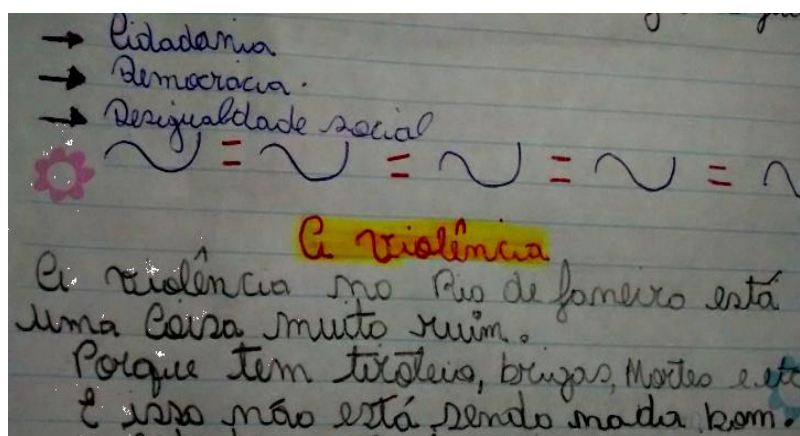 → Cidadania
→ Democracia.
→ Desigualdade social
A violência
A violência no Rio de Janeiro está
uma coisa muito ruim.
Porque tem tiroteio, brigas, Mortes e etc
E isso não está sendo nada bom.